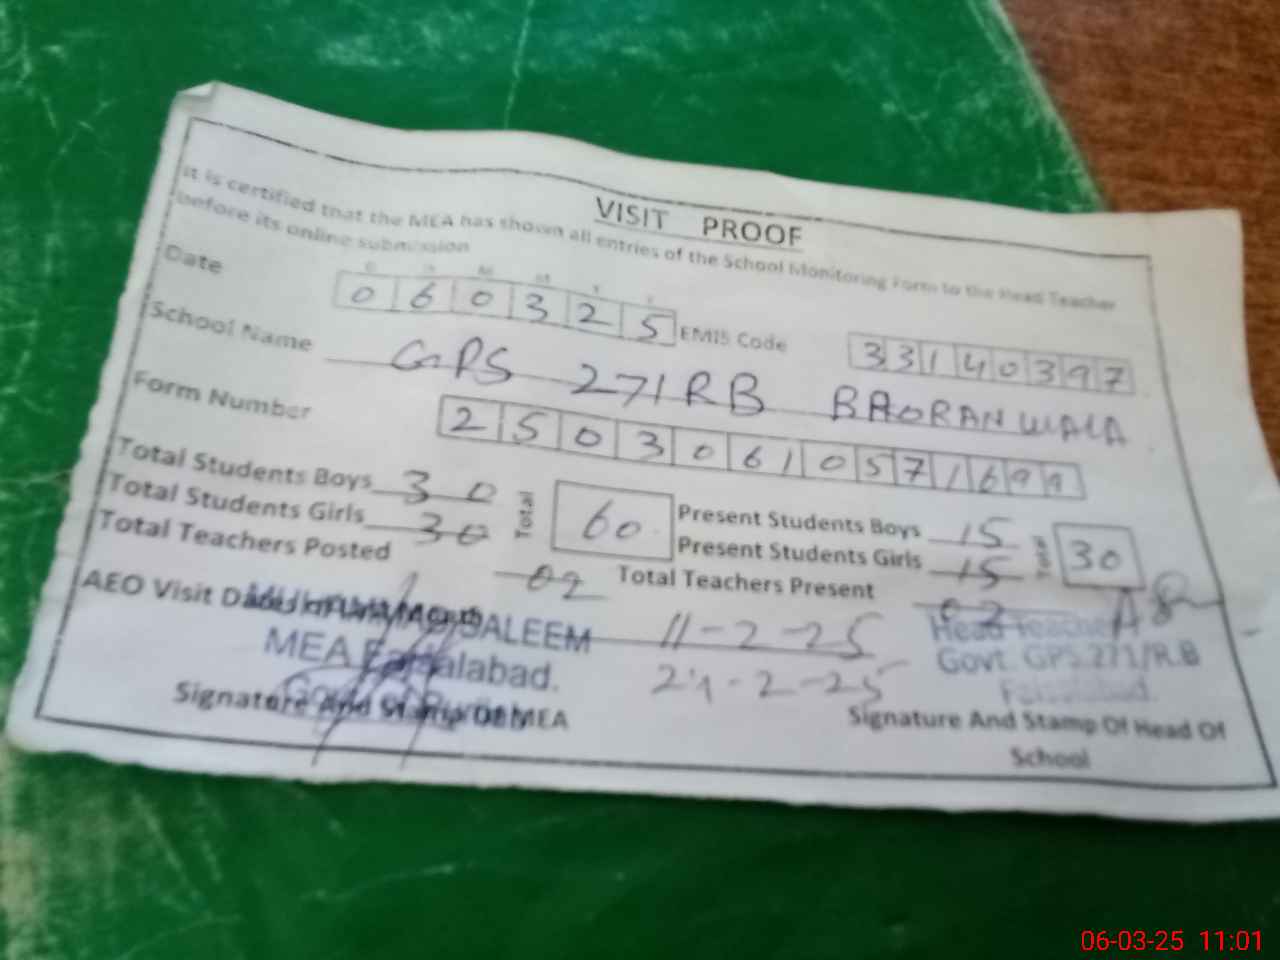 VISIT PROOF
It is certified that the MEA has shown all entries of the School Monitoring Form to the Head Teacher
before its online submission
Date 060325 EMIS Code 33140397
School Name GPS 271RB BAORANWALA
Form Number 2503061057169
Total Students Boys 30 Total 60 Present Students Boys 15 30
Total Students Girls 30 Present Students Girls 15
Total Teachers Posted 02 Total Teachers Present 02
AEO Visit 11-2-25
24-2-25
MUHAMMAD SALEEM
MEA Faisalabad.
Head Teacher
Govt. GPS.271/R.B
Faisalabad.
Signature And Stamp Of MEA
Signature And Stamp Of Head Of
School
06-03-25 11:01